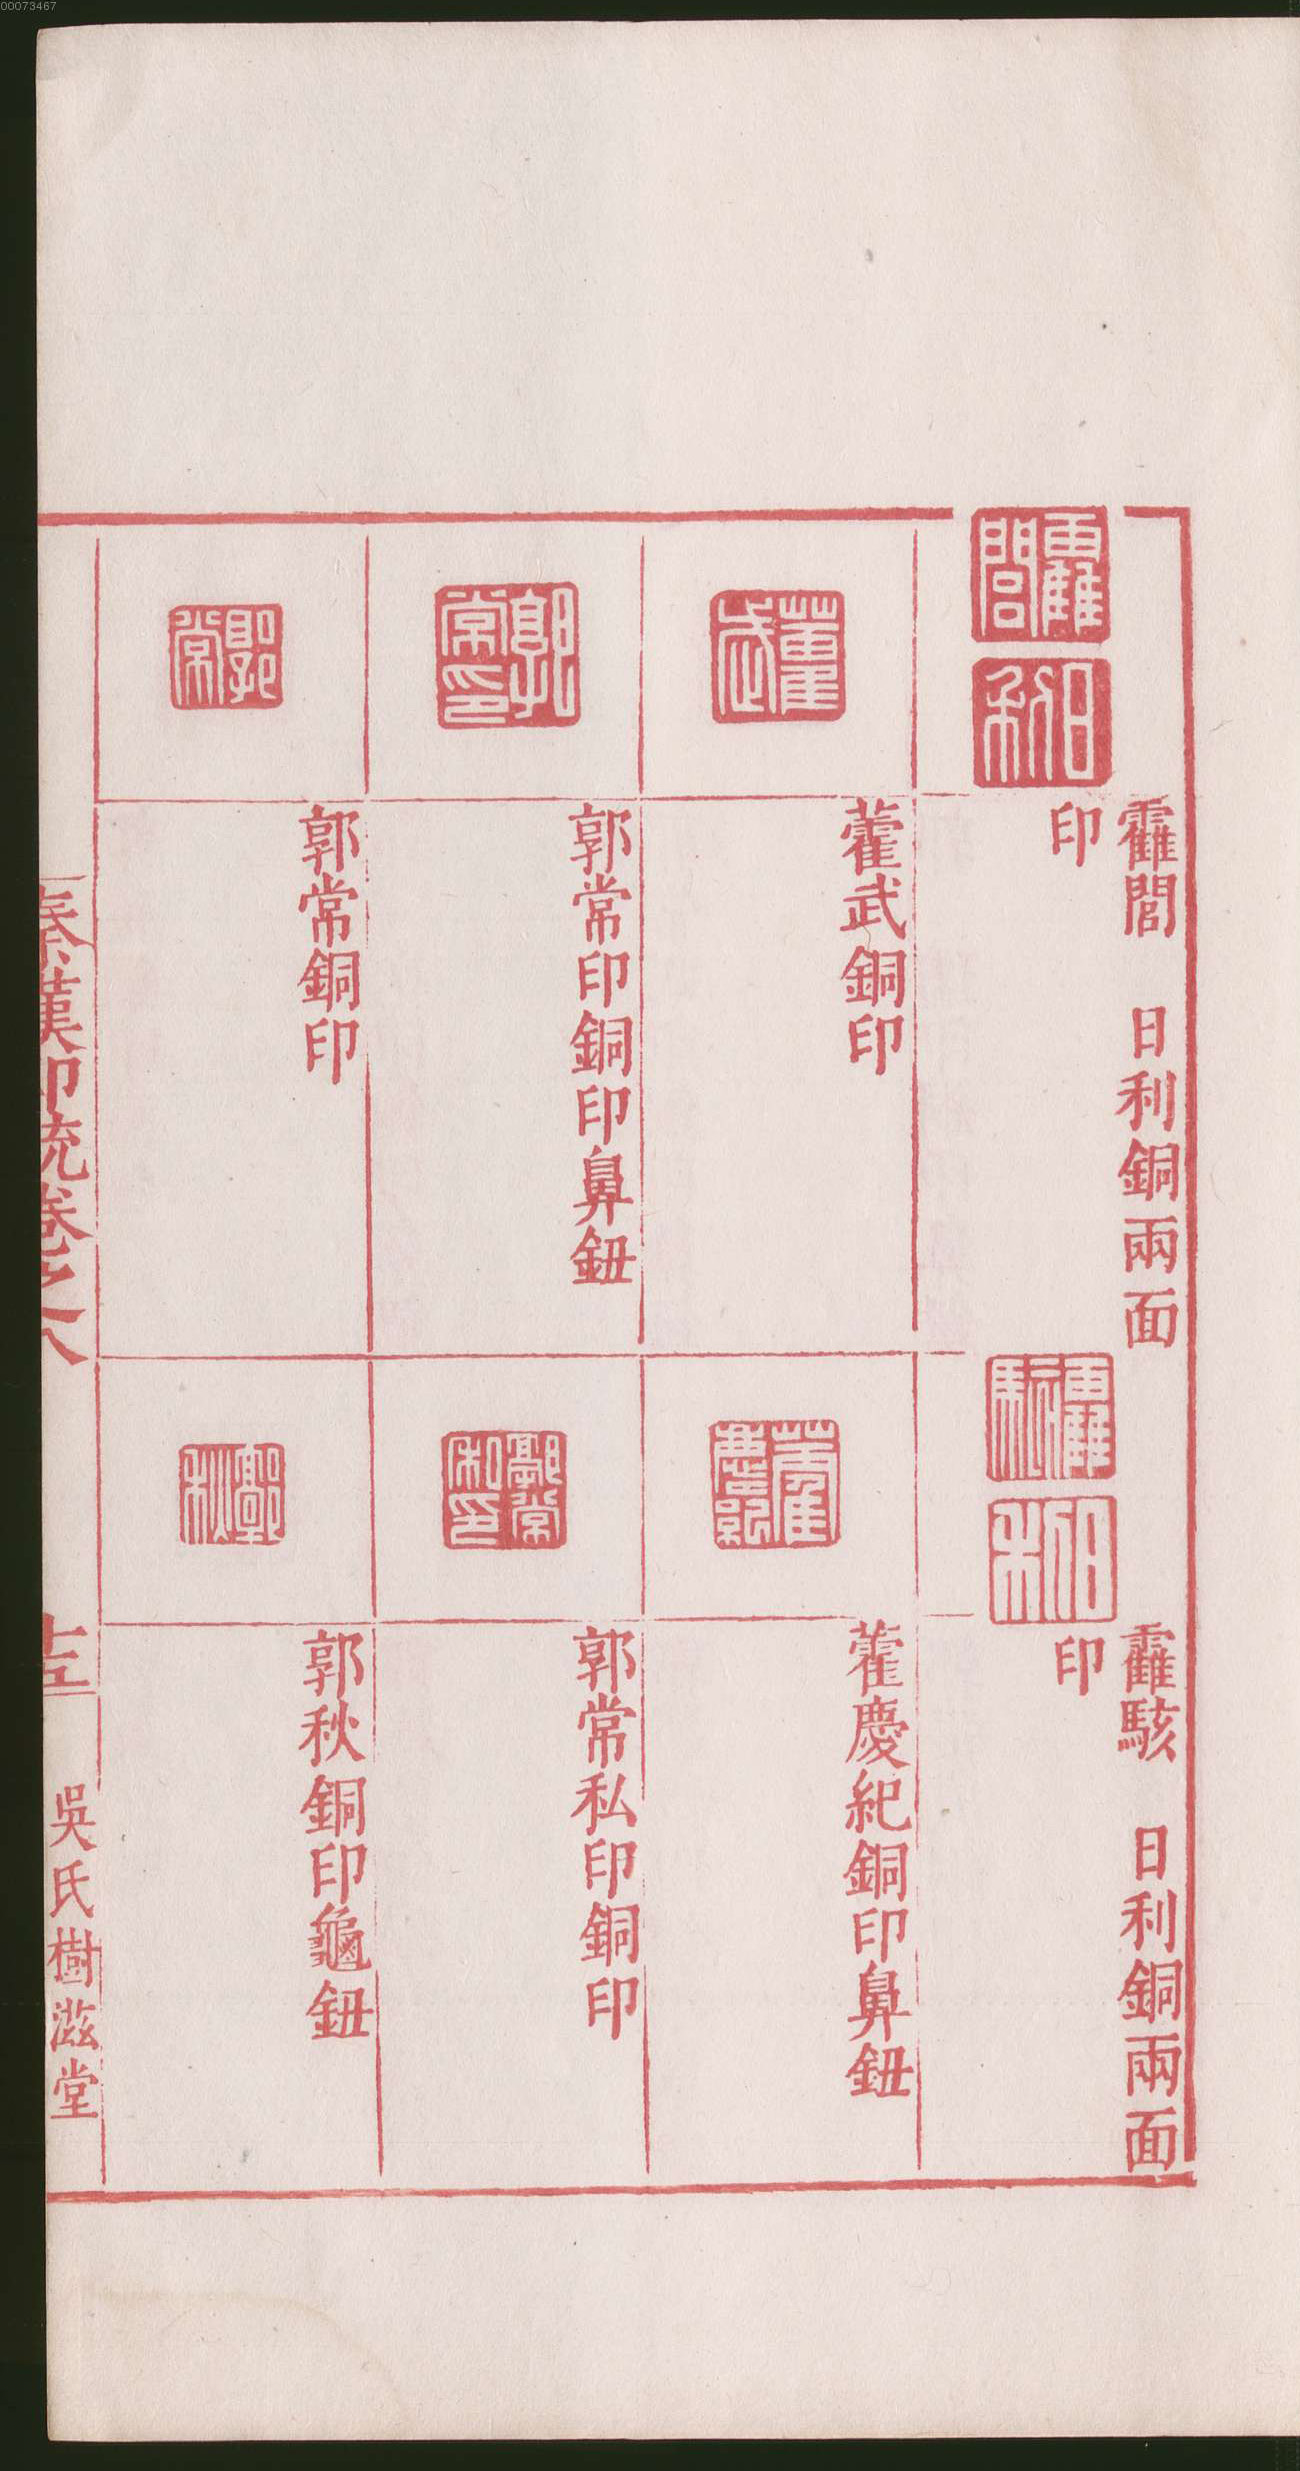 00073467
霍閭 日利銅兩面
印
霍駭 日利銅兩面
印
藿武銅印
藿慶紀銅印鼻鈕
郭常印銅印鼻鈕
郭常私印銅印
郭常銅印
郭秋銅印龜鈕
秦漢印統卷之八
吳氏樹滋堂